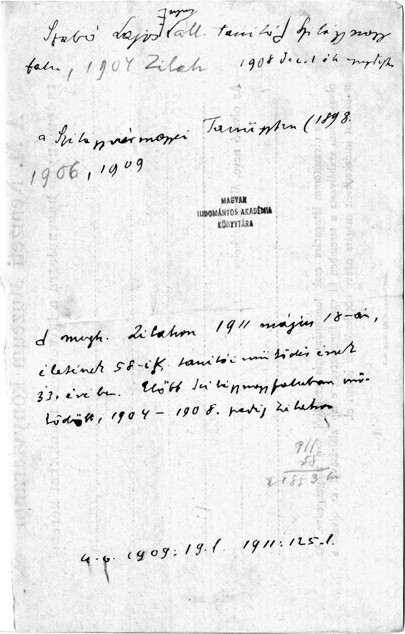 nyug.
Szabó Lajos áll. tanító Szilágynagy
falu, 1904 Zilah 1908 dec. 1 óta
a Szilágyvármegyei Tanügyben (1898.
1906, 1909
MAGYAR
TUDOMÁNYOS AKADÉMIA
KÖNYVTÁRA
megh. Zilahon 1911 május 18-án,
életének 58-ik, tanítói működésének
33. évében. Előbb Szilágynagyfaluban mű-
ködött, 1904 – 1908. pedig Zilahon
911
58
1853
U. o. 1909: 19. l. 1911: 125. l.